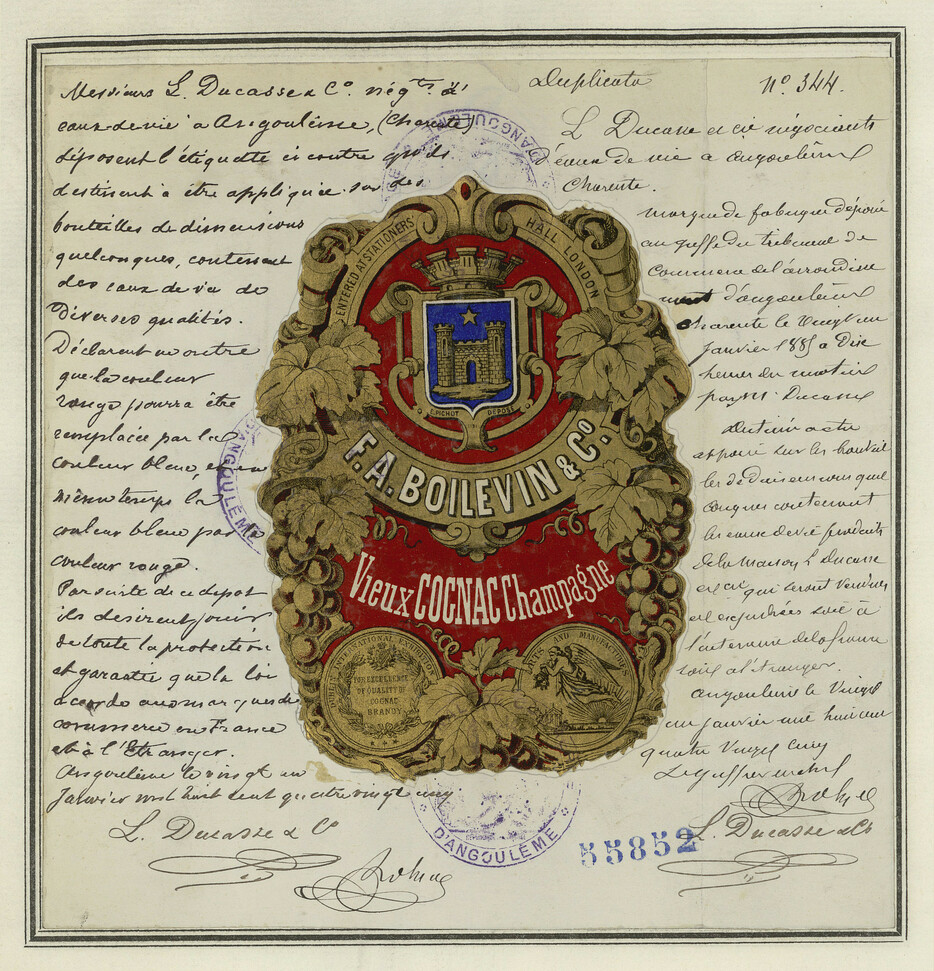 Messieurs L. Ducasse & Cº. négts. à
eaux-de-vie à Angoulême, (Charente)
déposent l'étiquette ci contre qu'ils
destinent à être appliquée sur des
bouteilles de dimensions
quelconques, contenant
des eaux de vie de
Diverses qualités.
Déclarent en outre
que la couleur
rouge pourra être
remplacée par la
couleur bleue, et en
même temps la
couleur bleue par
couleur rouge.
Par suite de ce dépot
ils désirent jouir
de toute la protection
et garantie que la loi
accorde aux marques de
commerce en France
et à l'Etranger.
Angoulême le vingt un
Janvier mil huit cent quatre vingt cinq.
L. Ducasse & Cº
Duplicata
Nº 344.
L Ducasse et cie négociants
eaux de vie a angoulême
Charente.
marque de fabrique déposée
au greffe du tribunal de
Commerce de l'arrondisse
ment d'angoulême
Charente le Vingt un
Janvier 1885 a Dix
heures du matin
par M. Ducasse
apposé sur les bouteil
les de Dimensions quel
conques contenant
les eaux de vie produits
de la maison L Ducasse
et cie qui seront vendues
et expédiées soit à
l'intérieur de la france
soit a l'étranger.
angoulême le Vingt
un janvier mil huit cent
quatre Vingt cinq
Le greffier
L. Ducasse & Cº
ENTERED AT STATIONERS' HALL LONDON
PICHOT DÉPOSÉ
F.A. BOILEVIN & Cº.
Vieux COGNAC Champagne
DUBLIN INTERNATIONAL EXHIBITION
FOR EXCELLENCE
OF QUALITY OF
COGNAC
BRANDY
ARTS AND MANUFACTURES
D'ANGOULÊME
D'ANGOULÊME
D'ANGOULÊME
55852